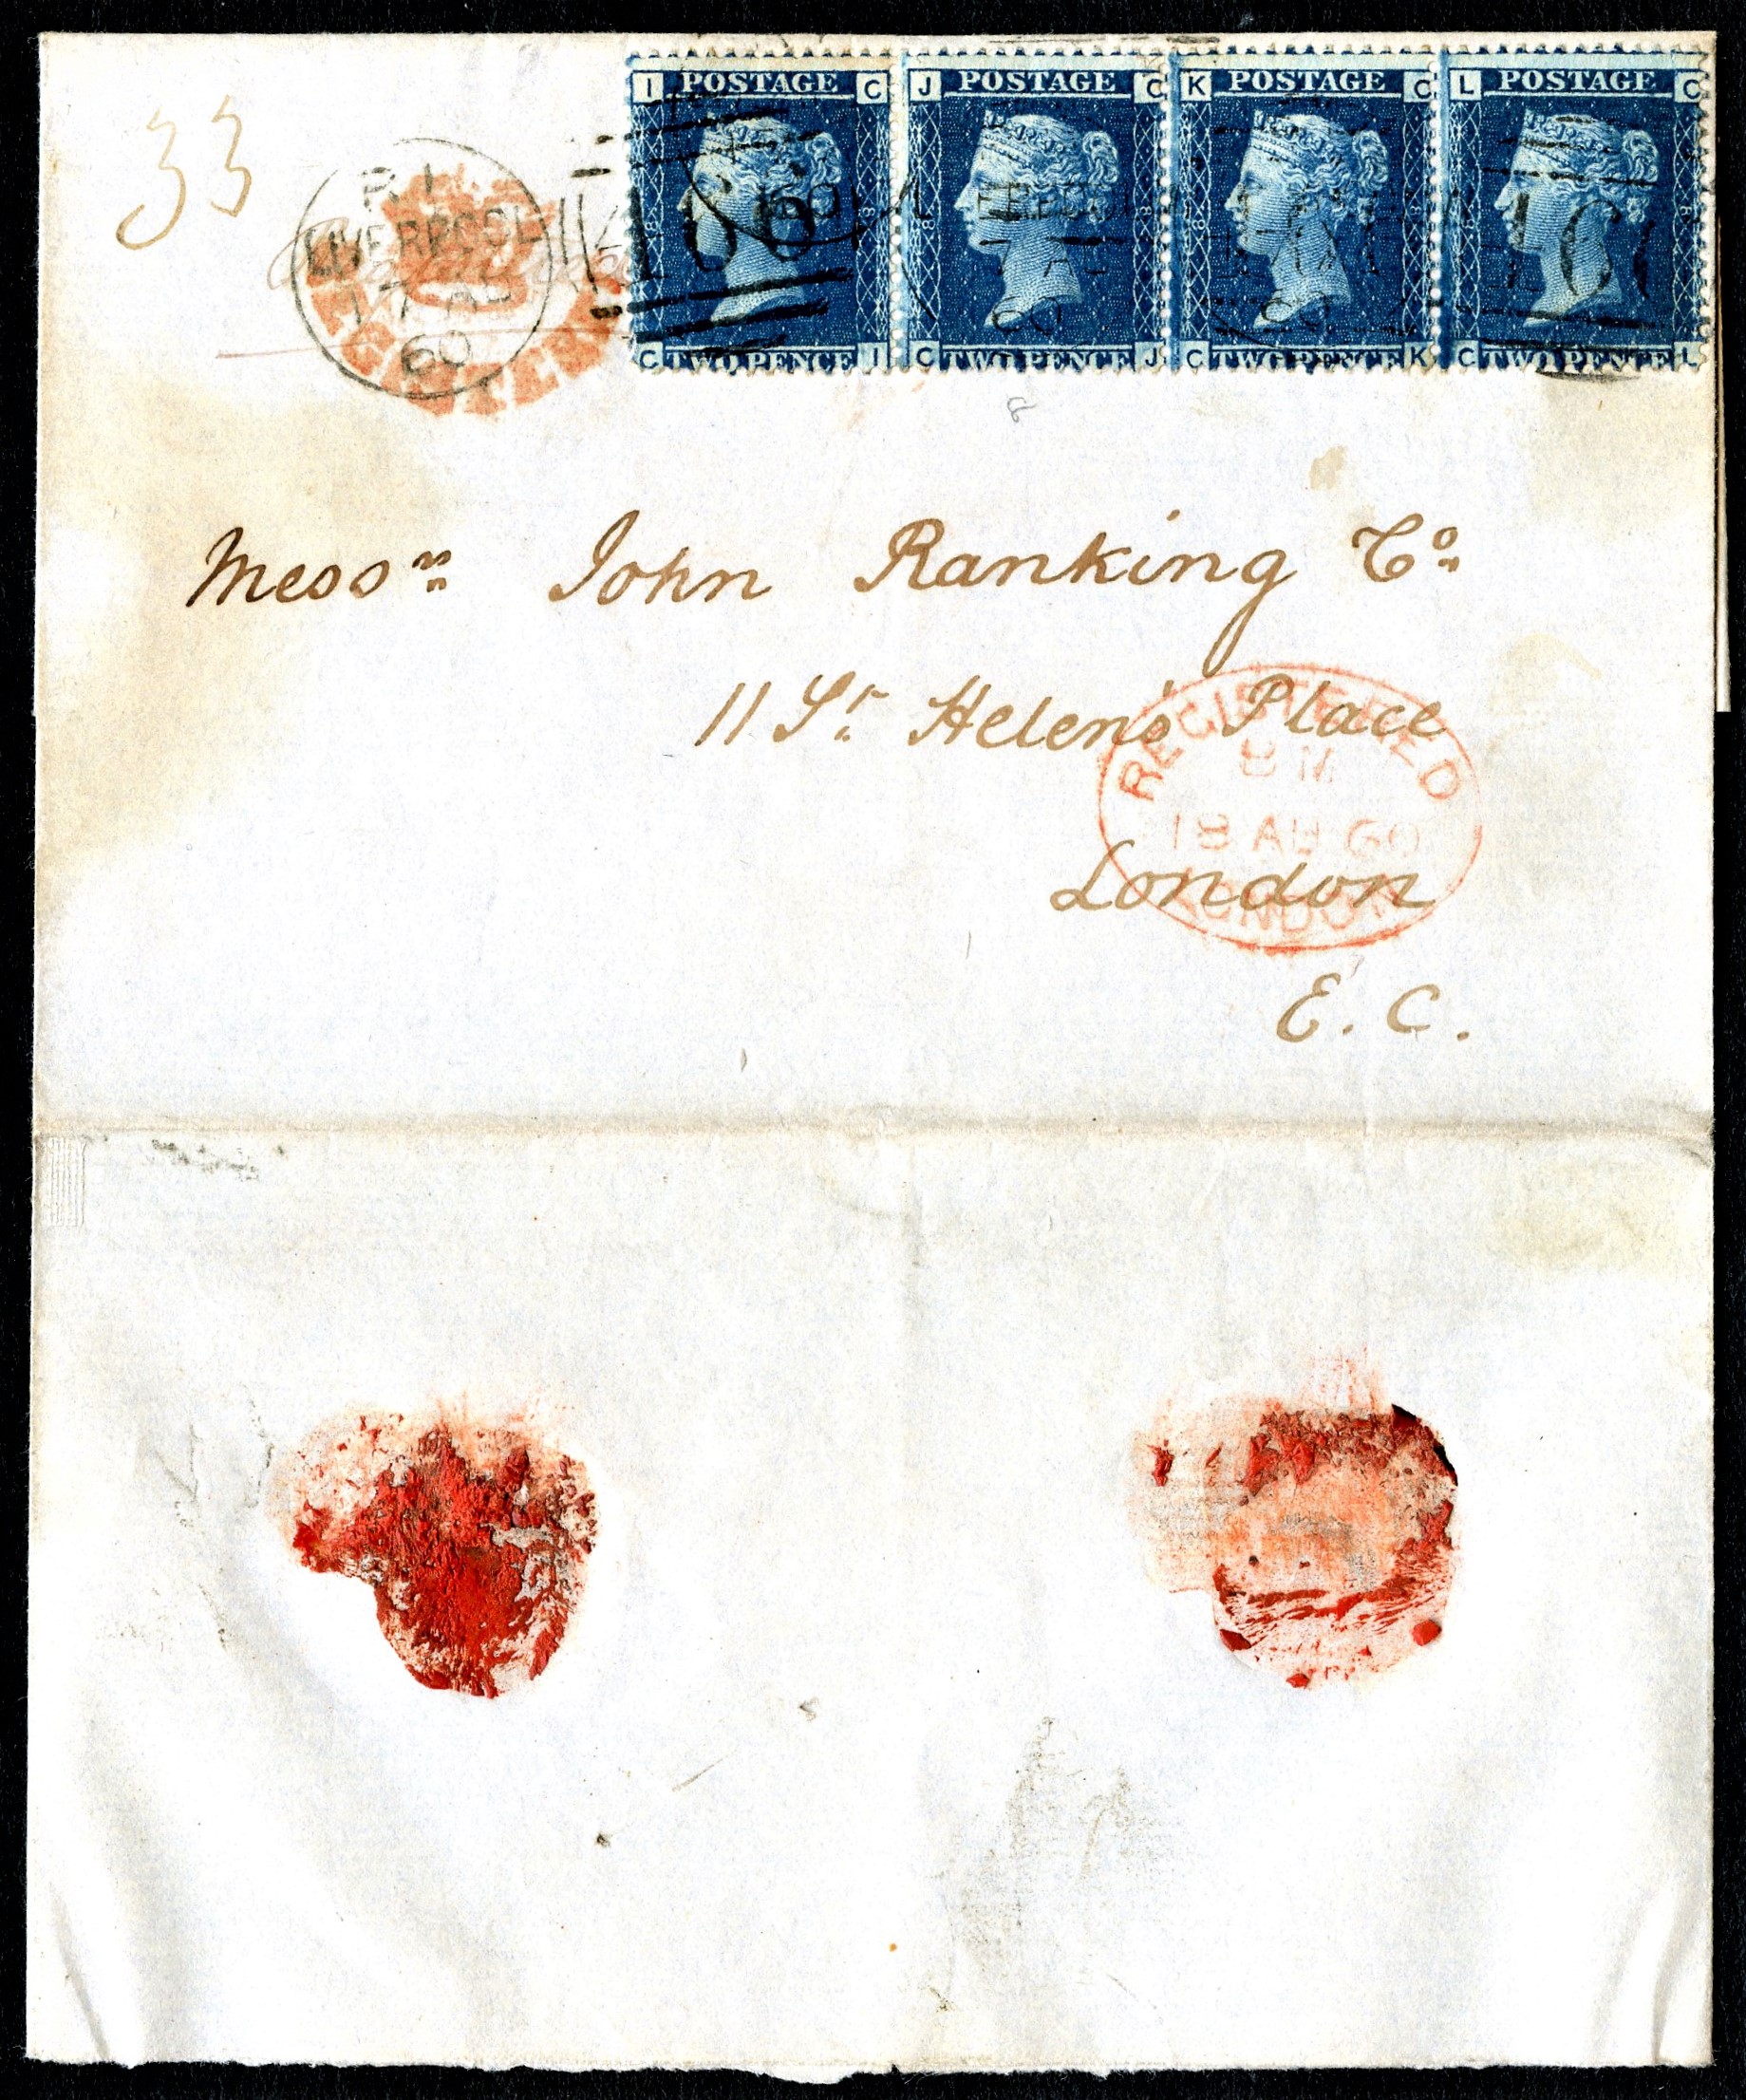 33
I POSTAGE C
C TWO PENCE I
J POSTAGE C
C TWO PENCE J
K POSTAGE C
C TWO PENCE K
L POSTAGE C
C TWO PENCE L
LIVERPOOL
17 AU
60
466
8
Messrs John Ranking Co
11 St Helen's Place
London
E. C.
REGISTERED
8 M
18 AU 60
LONDON